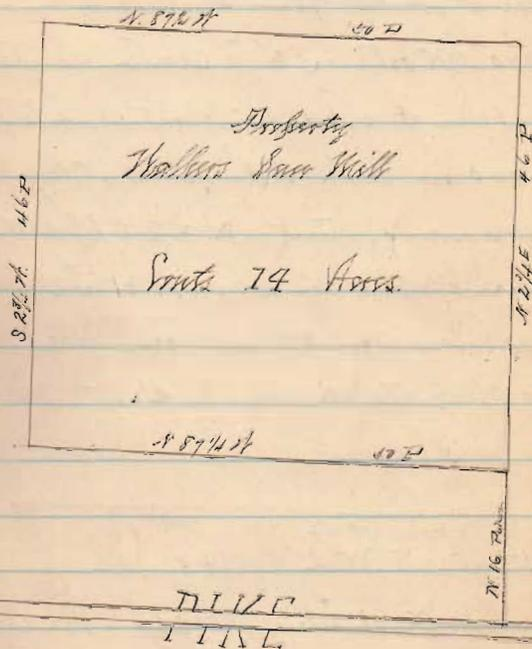 N. 87½ W 50 P
Property
Walkers Saw Mill
Conts 14 Acres.
S 2¾ W. 46 P
N 2¾ E 46 P
N 87¼ W 50 P
N 16 Poles
PIKE